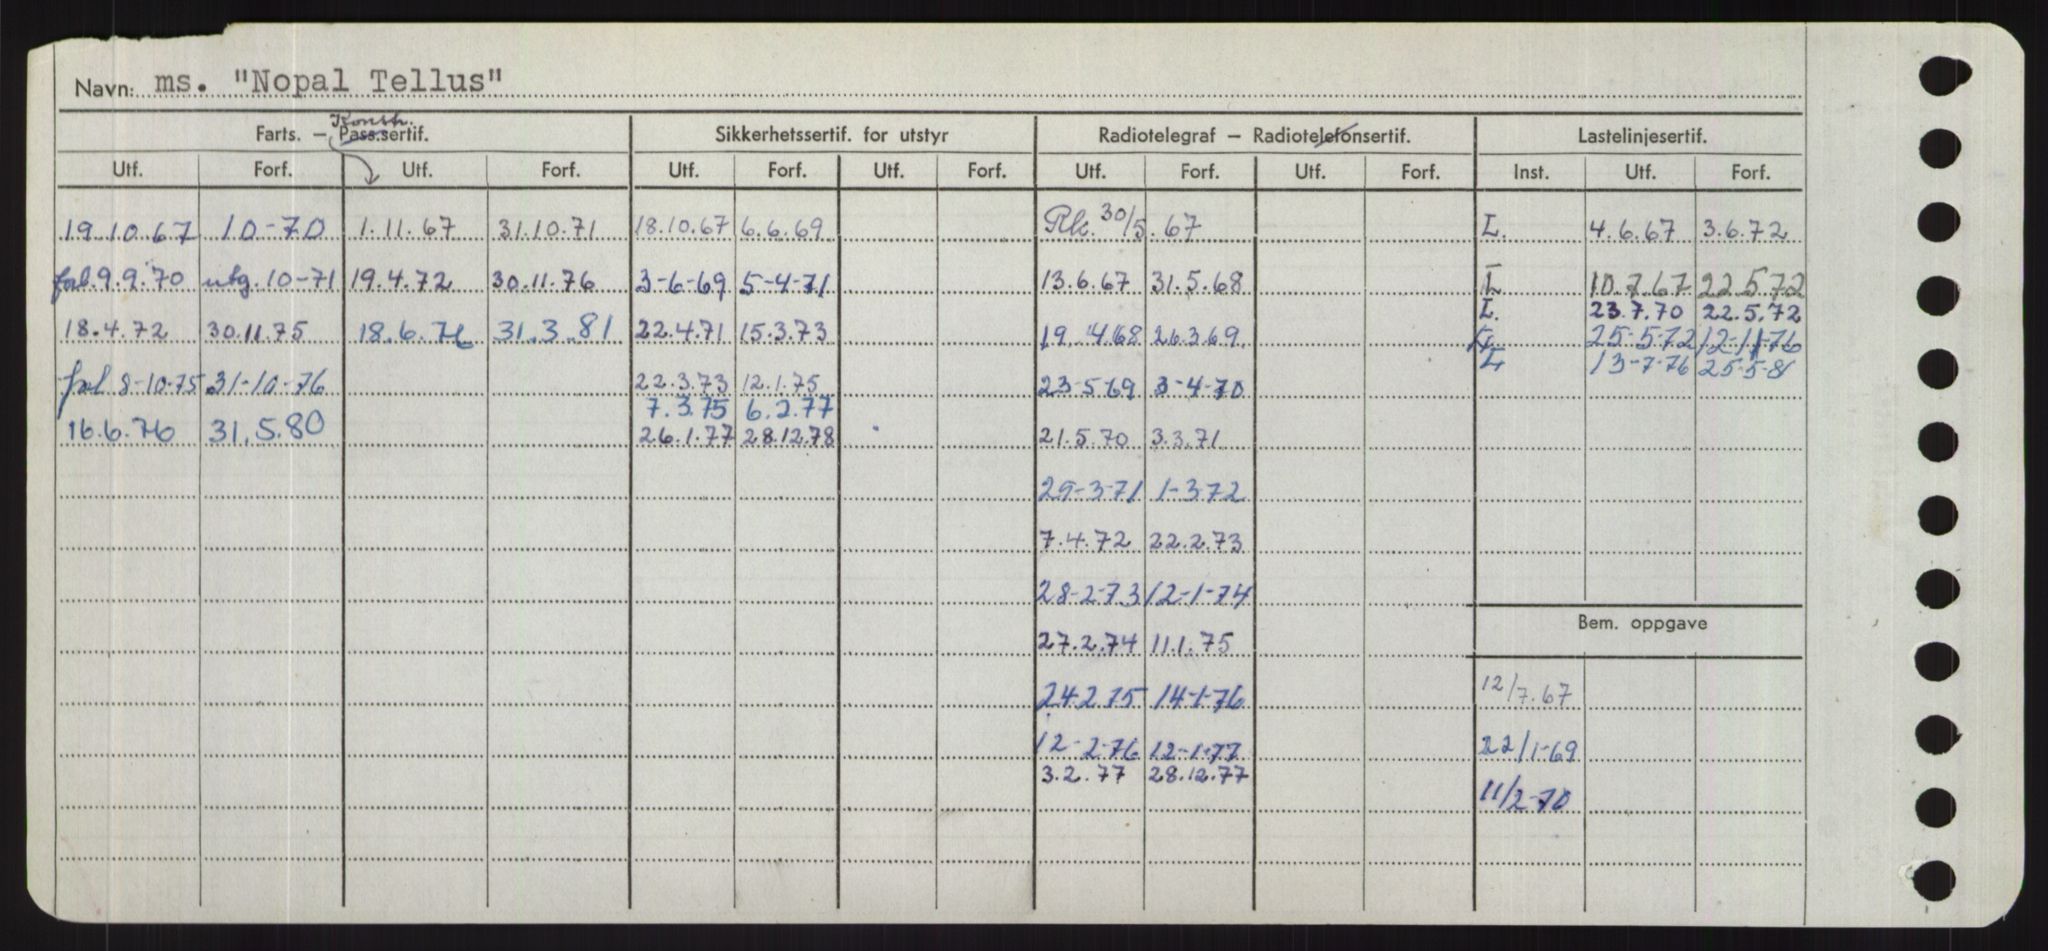 Navn: ms. "Nopal Tellus"
Konstr.
Farts. — Pass.sertif. Sikkerhetssertif. for utstyr Radiotelegraf — Radiotelefonsertif. Lastelinjesertif.
Utf. Forf. Utf. Forf. Utf. Forf. Utf. Forf. Utf. Forf. Utf. Forf. Inst. Utf. Forf.
19.10.67 10-70 1.11.67 31.10.71 18.10.67 6.6.69 30/5.67 L. 4.6.67 3.6.72
9.9.70 utg. 10-71 19.4.72 30.11.76 3-6-69 5-4-71 13.6.67 31.5.68 I 10.7.67 22.5.72
L. 23.7.70 22.5.72
18.4.72 30.11.75 18.6.76 31.3.81 22.4.71 15.3.73 19.4.68 26.3.69 25-5-72 12-11-76
L 13-7-76 25-5-81
8-10-75 31-10-76 22.3.73 12.1.75 23-5-69 3-4-70
7.3.75 6.2.77
16.6.76 31.5.80 26.1.77 28.12.78 21.5.70 3.3.71
29-3-71 1-3-72
7.4.72 22.2.73
28-2-73 12-1-74
Bem. oppgave
27.2.74 11.1.75
24.2.75 14-1-76 12/7.67
12-2-76 12-1-77 22/1-69
3.2.77 28.12.77
11/2-70